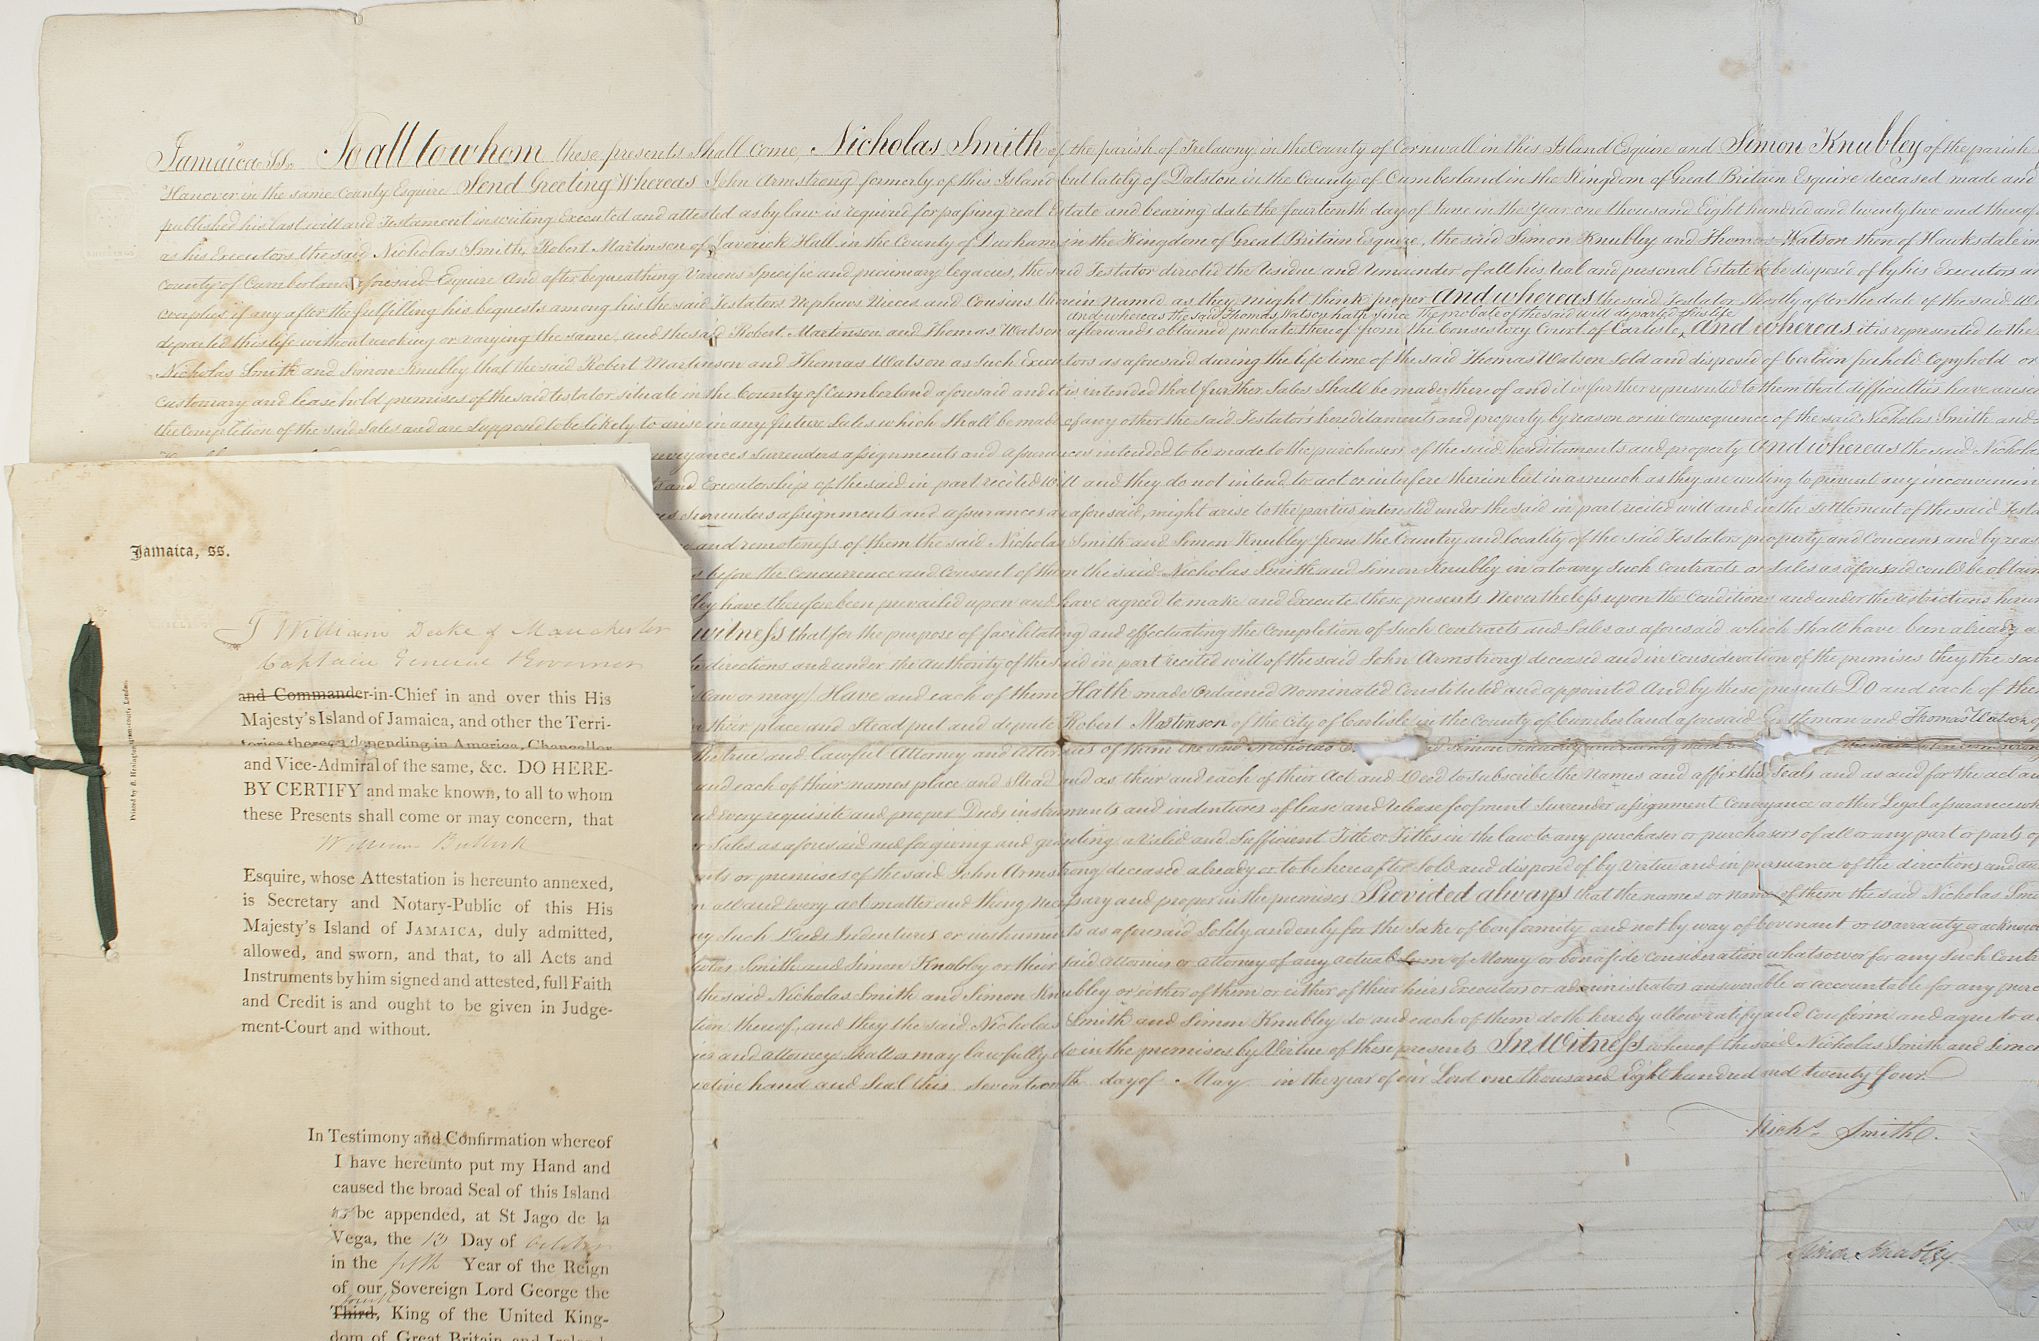 Jamaica Ss. To all to whom these presents shall come, Nicholas Smith of the parish of Trelawny in the County of Cornwall in this Island Esquire and Simon Knubley of the parish
Hanover in the same County Esquire Send Greeting Whereas John Armstrong formerly of this Island but lately of Dalston in the County of Cumberland in the Kingdom of Great Britain Esquire deceased made and
published his last will and Testament in writing Executed and attested as by law is required for passing real Estate and bearing date the fourteenth day of June in the Year one thousand Eight hundred and twenty two and thereof
as his Executors the said Nicholas Smith, Robert Martinson of Laverick Hall in the County of Durham in the Kingdom of Great Britain Esquire, the said Simon Knubley and Thomas Watson then of Hawksdale in
County of Cumberland aforesaid Esquire And after bequeathing Various Specific and pecuniary legacies, the said Testator directed the residue and remainder of all his real and personal Estate to be disposed of by his Executors and
overplus if any after the fulfilling his bequests among his the said Testators Nephews Nieces and Cousins therein named as they might think proper And whereas the said Testator shortly after the date of the said W
and whereas the said Thomas Watson hath since the probate of the said will departed this life
departed this life without revoking or varying the same, and the said Robert Martinson and Thomas Watson afterwards obtained probate thereof from the Consistory Court of Carlisle, And whereas it is represented to the
Nicholas Smith and Simon Knubley that the said Robert Martinson and Thomas Watson as such Executors as aforesaid during the life time of the said Thomas Watson Sold and disposed of Certain freehold Copyhold or
Customary and leasehold premises of the said testator situate in the County of Cumberland aforesaid and it is intended that further Sales Shall be made thereof and it is further represented to them that difficulties have arisen
the Completion of the said Sales and are Supposed to be likely to arise in any future Sales which Shall be made of any other the said Testator's hereditaments and property by reason or in Consequence of the said Nicholas Smith and
Conveyances Surrenders assignments and assurances intended to be made to the purchasers of the said hereditaments and property And whereas the said Nicholas
and Executorship of the said in part recited Will and they do not intend to act or interfere therein but in as much as they are willing to prevent any inconvenien
Surrenders assignments and assurances as aforesaid, might arise to the parties interested under the said in part recited will and in the settlement of the said Testa
and remoteness of them the said Nicholas Smith and Simon Knubley from the Country and locality of the said Testators property and Concerns and by reas
before the Concurrence and Consent of them the said Nicholas Smith and Simon Knubley in or to any Such Contracts or Sales as aforesaid could be obtain
have therefore been prevailed upon and have agreed to make and Execute these presents Nevertheless upon the Conditions and under the restrictions herein
witness that for the purpose of facilitating and effectuating the Completion of Such Contracts and Sales as aforesaid which Shall have been already
directions and under the authority of the said in part recited will of the said John Armstrong deceased and in Consideration of the premises they the said
law or may) Have and each of them Hath made Ordained Nominated Constituted and appointed And by these presents Do and each of the
their place and Stead put and depute Robert Martinson of the City of Carlisle in the County of Cumberland aforesaid Gentleman and Thomas Watson of
true and lawful Attorney and attornies of them the said Nicholas
and each of their names place and Stead and as their and each of their Act and Deed to Subscribe the Names and affix the Seals and as and for the act an
every requisite and proper Deeds instruments and indentures of lease and release feofment Surrender assignment Conveyance or other Legal assurance wh
Sales as aforesaid and for giving and granting a Valid and Sufficient Title or Titles in the law to any purchaser or purchasers of all or any part or parts of
or premises of the said John Armstrong deceased already or to be hereafter sold and disposed of by Virtue and in pursuance of the directions and au
all and every act matter and thing necessary and proper in the premises Provided always that the names or name of them the said Nicholas Smi
Such Deeds Indentures or instruments as aforesaid Solely and only for the Sake of Conformity and not by way of Covenant or warranty or acknow
Smith and Simon Knubley or their said attornies or attorney of any actual Sum of Money or bonafide consideration whatsoever for any Such Contr
the said Nicholas Smith and Simon Knubley or either of them or either of their heirs Executors or administrators answerable or accountable for any purc
thereof, and they the said Nicholas Smith and Simon Knubley do and each of them doth hereby allow ratify and Confirm and agree to a
and attorney Shall or may lawfully do in the premises by Virtue of these presents In Witness whereof the said Nicholas Smith and Simon
hand and Seal this Seventeenth day of May in the year of our Lord one thousand Eight hundred and twenty four.
Nichs. Smith.
Simon Knubley
Jamaica, ss.
I William Duke of Manchester
Captain General & Governor
and Commander-in-Chief in and over this His
Majesty's Island of Jamaica, and other the Terri-
tories thereon depending in America, Chancellor
and Vice-Admiral of the same, &c. DO HERE-
BY CERTIFY and make known, to all to whom
these Presents shall come or may concern, that
William Bullock
Esquire, whose Attestation is hereunto annexed,
is Secretary and Notary-Public of this His
Majesty's Island of JAMAICA, duly admitted,
allowed, and sworn, and that, to all Acts and
Instruments by him signed and attested, full Faith
and Credit is and ought to be given in Judge-
ment-Court and without.
In Testimony and Confirmation whereof
I have hereunto put my Hand and
caused the broad Seal of this Island
to be appended, at St Jago de la
Vega, the 13 Day of October
in the fifth Year of the Reign
of our Sovereign Lord George the
fourth
Third, King of the United King-
dom of Great Britain and Ireland